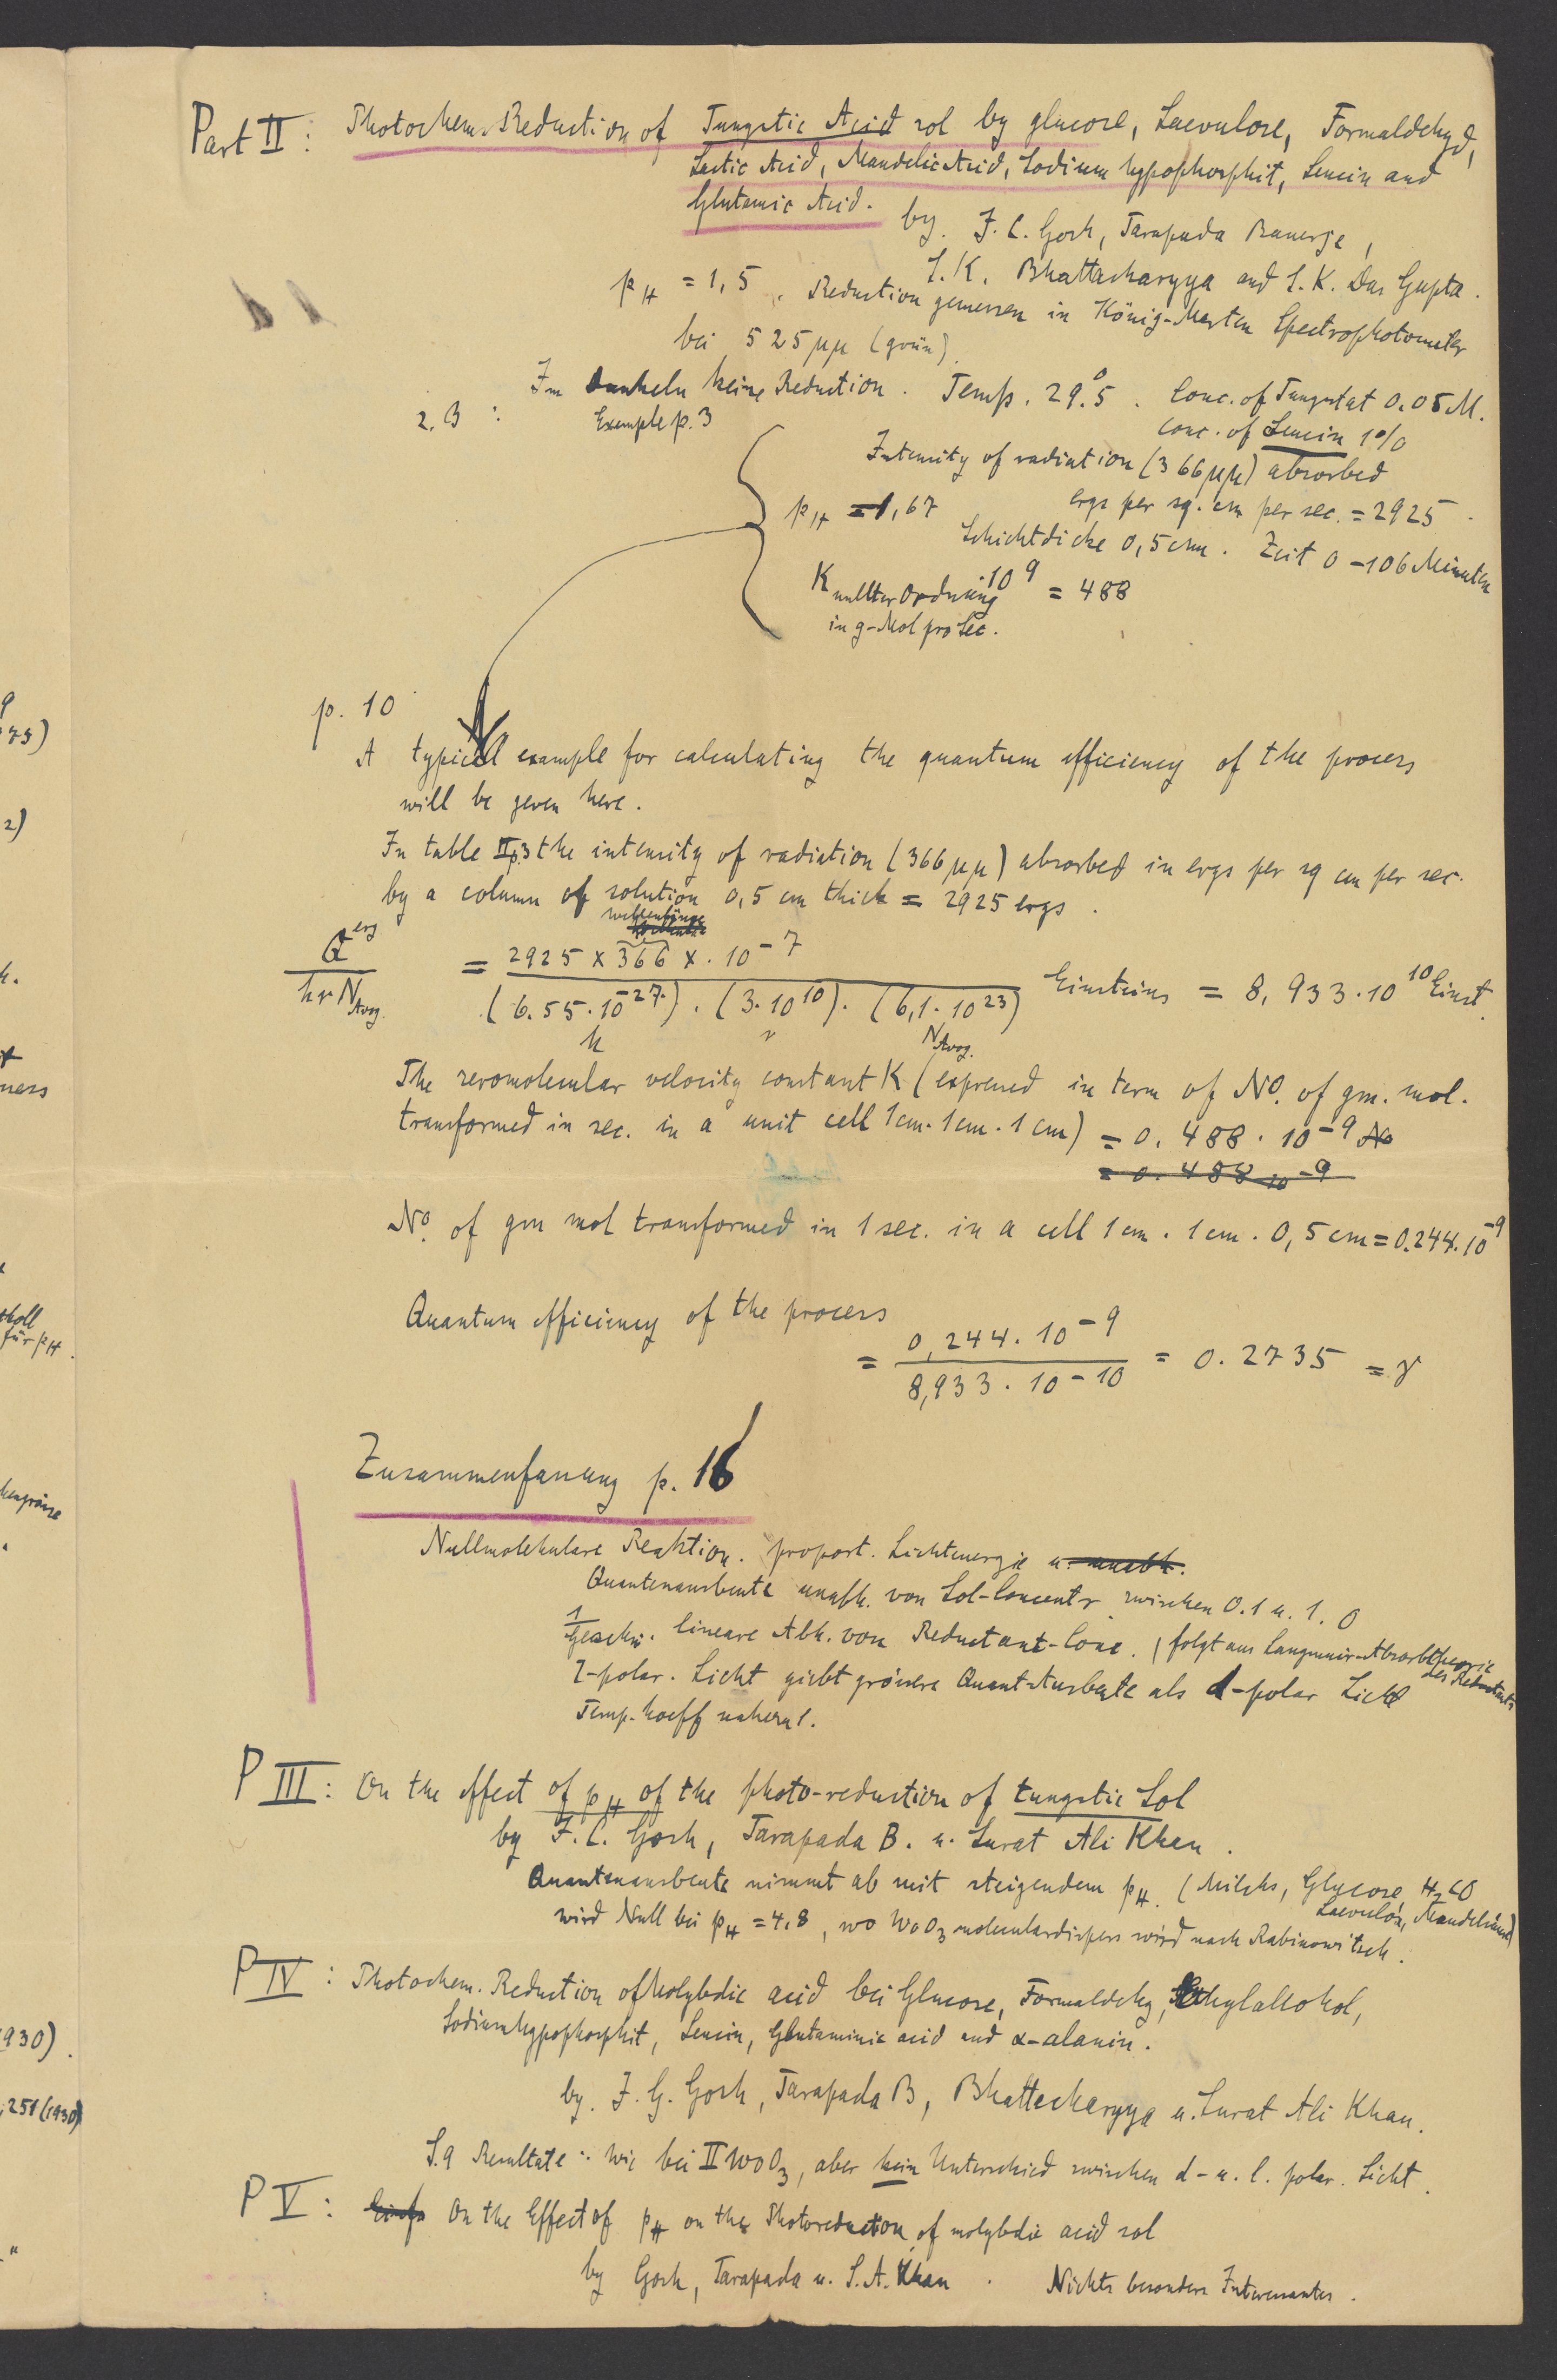 Part II : Photochem. Reduction of Tungstic Acid sol by glucose, Laevulose, Formaldehyd,
Lactic Acid, Mandelic Acid, Sodium hypophosphit, Leucin and
Glutamic Acid. by. J. C. Gosh, Tarapada Banerje,
S. K. Bhattacharyya and S. K. Das Gupta.
pH = 1,5 . Reduction gemessen in König-Marten Spectrophotometer
bei 525 µµ (grün).
Im Dunkeln keine Reduction. Temp. 29.°5 . Conc. of Tungstat 0.05 M.
z. B : Example p. 3
Conc. of Leucin 1%
Intensity of radiation (366 µµ) absorbed
ergs per sq. cm per sec. = 2925 .
pH = 1,67
Schichtdicke 0,5 cm. Zeit 0 – 106 Minuten
K nullter Ordnung · 10 9 = 488
in g-Mol pro Sec.
p. 10
A typical example for calculating the quantum efficiency of the process
will be geven here.
In table II p.3 the intensity of radiation (366 µµ) absorbed in ergs per sq cm per sec.
by a column of solution 0,5 cm thick = 2925 ergs .
Wellenlänge
Q erg / hν N Avog. = 2925 x 366 x · 10 -7 / (6.55 · 10 -27) · (3 · 10 10) · (6,1 · 10 23) Einsteins = 8,933 · 10 10 Einst.
h ν N Avog.
The zeromolecular velocity constant K (expressed in term of No. of gm. mol.
transformed in sec. in a unit cell 1 cm · 1 cm · 1 cm) = 0. 488 · 10 -9 No
= 0. 488 10 -9
No. of gm mol transformed in 1 sec. in a cell 1 cm · 1 cm · 0,5 cm = 0.244 · 10 -9
Quantum efficiency of the process
= 0,244 · 10 -9 / 8,933 · 10 -10 = 0. 2735 = γ
Zusammenfassung p. 16
Nullmolekulare Reaktion. proport. Lichtenergie u. unabh.
Quantenausbeute unabh. von Sol-Concentr zwischen 0.1 u. 1. 0
1/Geschw. lineare Abh. von Reductant-Conc. (folgt aus Langmuir-Absorbtheorie
des Reductants
l-polar. Licht giebt grössere Quant-Ausbeute als d-polar Licht
Temp.koeff nahezu 1.
P III : On the effect of pH of the photo-reduction of tungstic Sol
by J. C. Gosh, Tarapada B. u. Surat Ali Khan .
Quantenausbeute nimmt ab mit steigendem pH. (Milchs, Glycose, H2CO
Laevulos, Mandelsäure)
wird Null bei pH = 4,8, wo WoO3 moleculardispers wird nach Rabinowitsch.
P IV : Photochem. Reduction of Molybdic acid bei Glucose, Formaldehy, Aethylalkohol,
Sodiumhypophosphit, Leucin, Glutaminic acid and α-alanin.
by. J. G. Gosh, Tarapada B, Bhattecharyya u. Surat Ali Khan.
S.9 Resultate : Wie bei II WoO3, aber kein Unterschied zwischen d- u. l. polar. Licht.
P V : On the Effect of pH on the Photoreduction of molybdic acid sol
by Gosh, Tarapada u. S. A. Khan . Nichts besonders Interessantes.
2)
ness
für pH.
1930).
251 (1930)